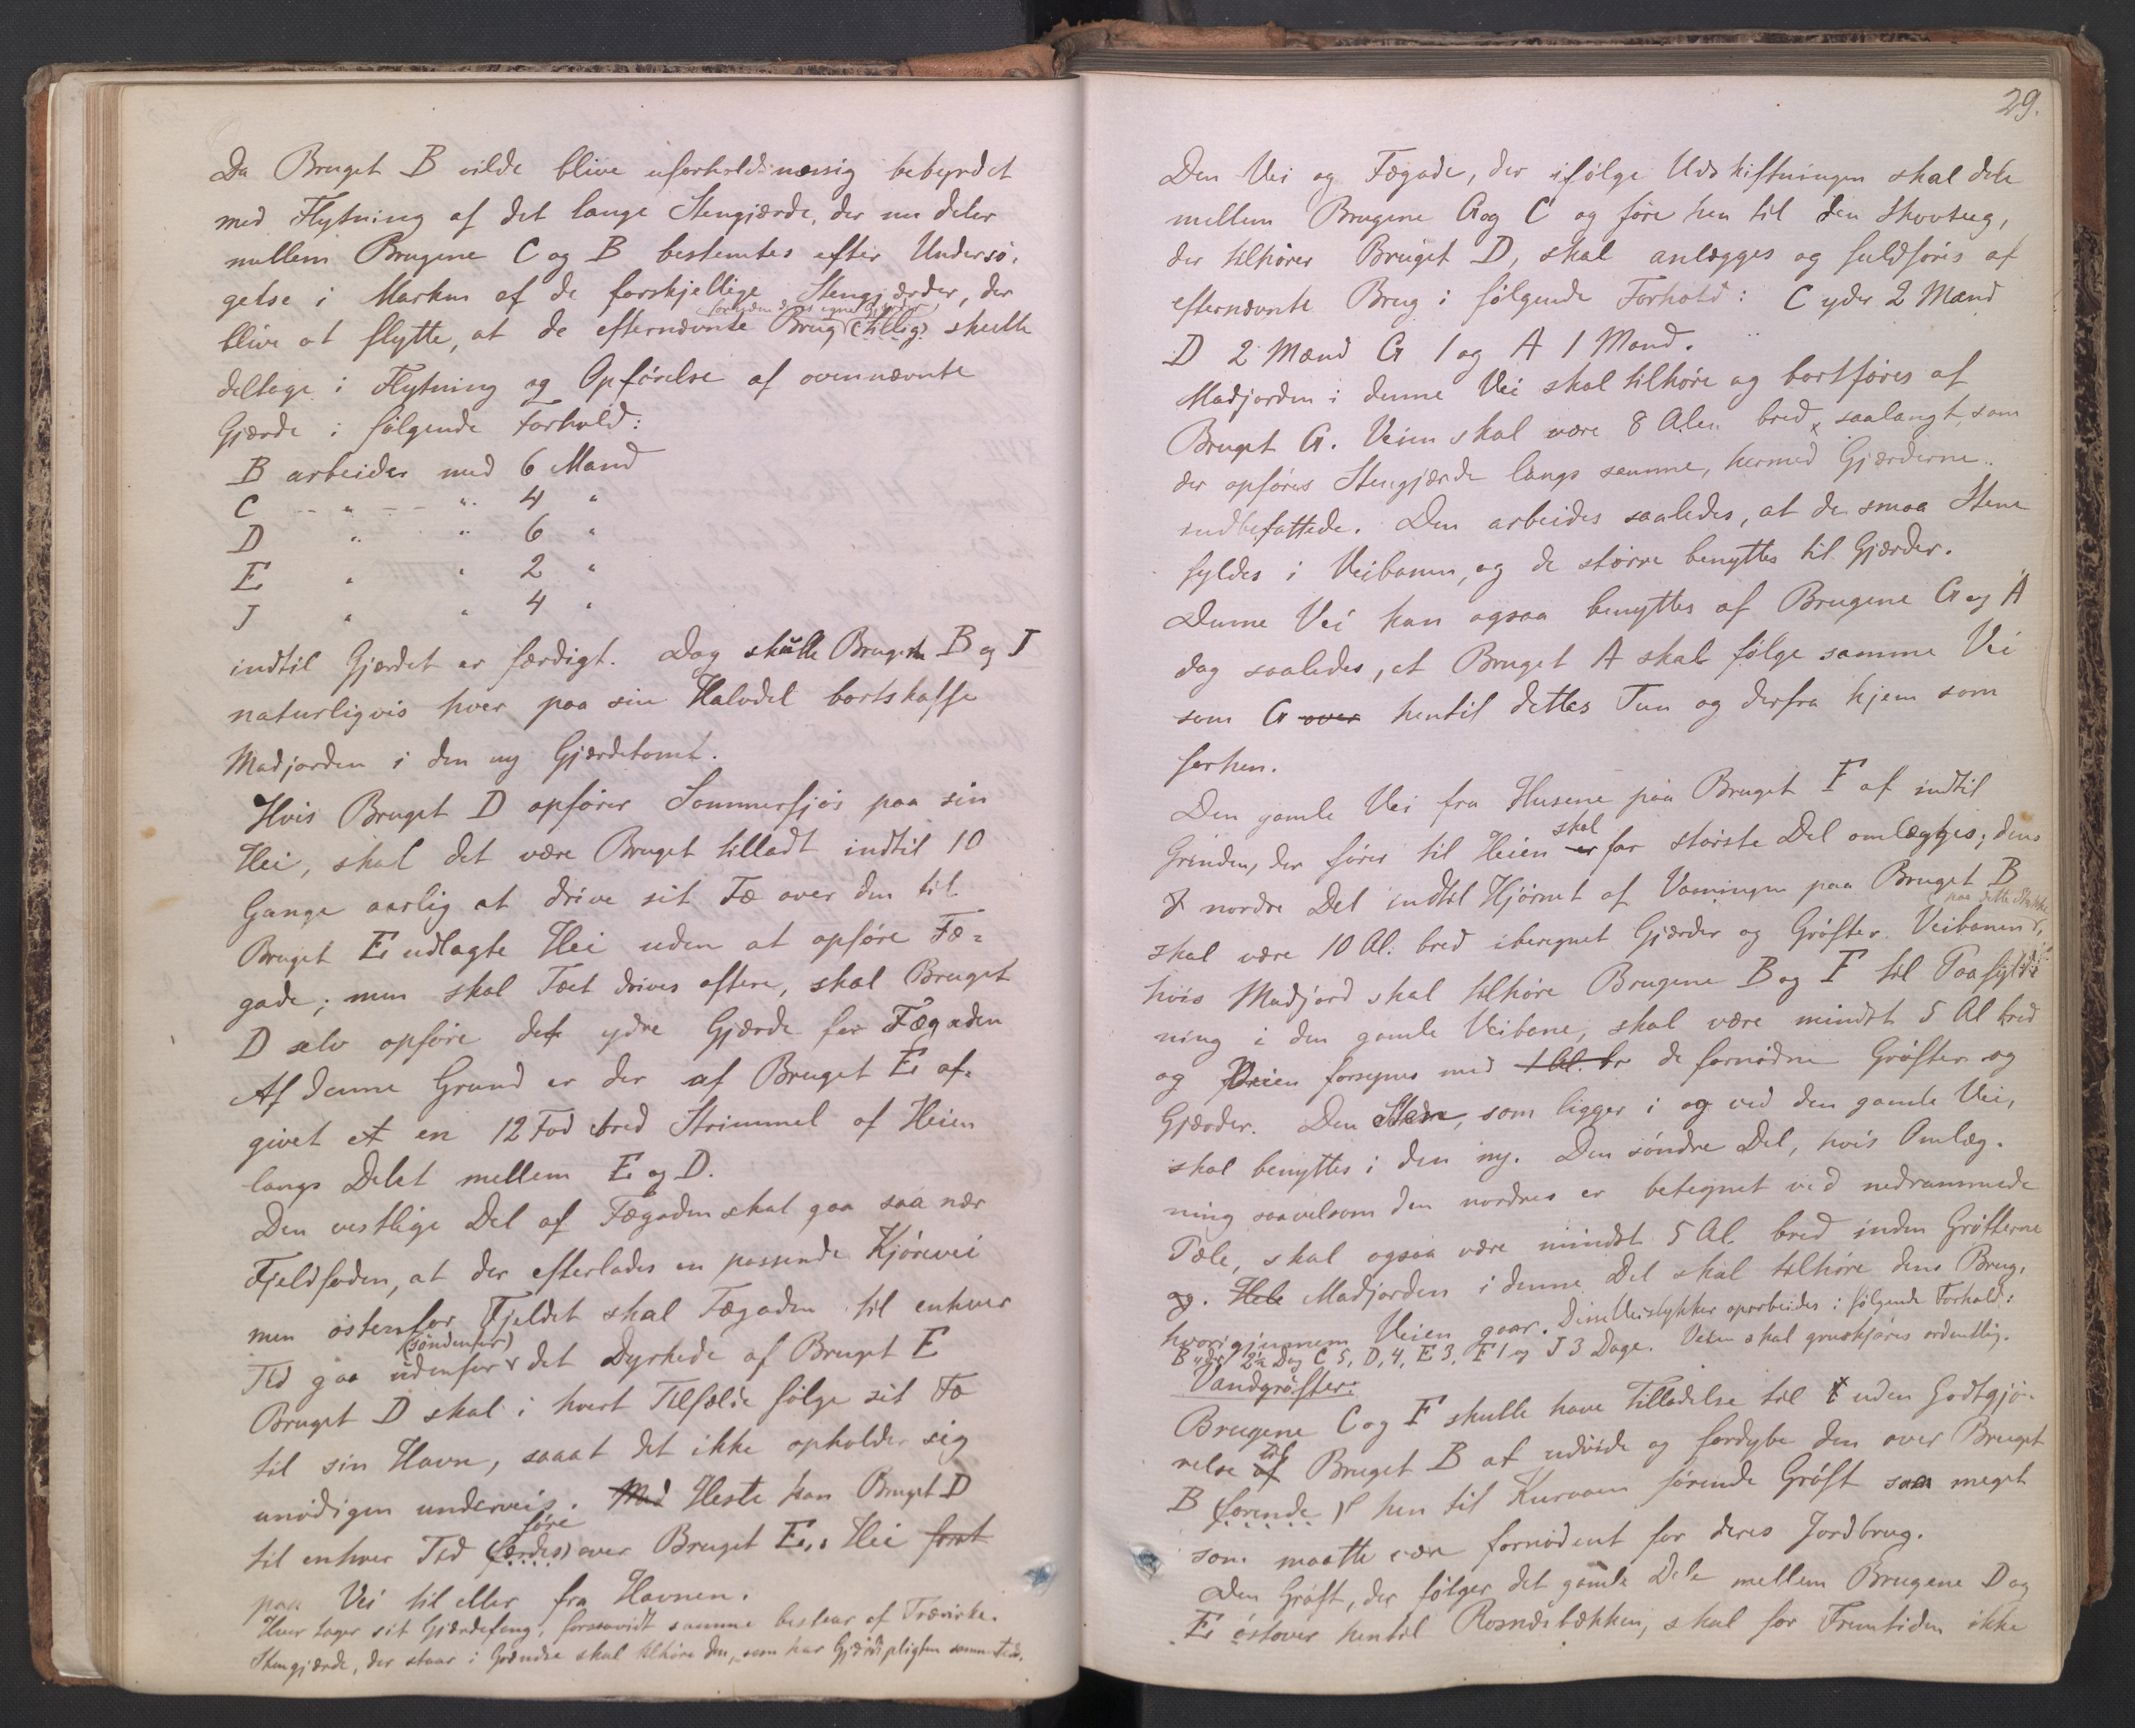 Da Bruget B vilde blive uforholdsmæssig bebyrdet
med Flytning af det lange Stengjærde, der nu deler
mellem Brugene C og B bestemtes efter Undersø-
gelse i Marken af de forskjellige Stengjærder, der
foruden deres egne Gjærder
blive at flytte, at de efternævnte Brug (tillig) skulle
deltage i Flytning og Opførelse af ovennævnte
Gjærde i følgende Forhold:
B arbeider med 6 Mand
C -- " -- " 4 "
D " " 6 "
E " " 2 "
J " " 4 "
indtil Gjærdet er færdigt. Dog skulle Brugene B og J
naturligvis hver paa sin Halvdel bortskaffe
Madjorden i den ny Gjærdetomt.
Hvis Bruget D opfører Sommerfjøs paa sin
Hei, skal det være Bruget tilladt indtil 10
Gange aarlig at drive sit Fæ over den til
Bruget E udlagte Hei uden at opføre Fæ-
gade; men skal Fæet drives oftere, skal Bruget
D selv opføre det ydre Gjærde for Fægaden
Af denne Grund er der af Bruget E af-
givet et en 12 Fod bred Strimmel af Heien
langs Delet mellem E og D.
Den vestlige Del af Fægaden skal gaa saa nær
Fjeldfoden, at der efterlades en passende Kjørevei
men østenfor Fjeldet skal Fægaden til enhver
(søndenfor)
Tid gaa udenfor det Dyrkede af Bruget E
Bruget D skal i hvert Tilfælde følge sit Fæ
til sin Havn, saaat det ikke opholder sig
unødigen underveis. Med Heste kan Bruget D
føre
til enhver Tid (færdes) over Bruget E,s Hei forat
paa Vei til eller fra Havnen.
Hver tager sit Gjærdefang, forsaavidt samme bestaar af Trævirke.
Stengjærde, der staar i Grændse skal tilhøre den, som har Gjærdepligten sammesteds.
29.
Den Vei og Fægade, der ifølge Udskiftningen skal dele
mellem Brugene G og C og føre hen til den Skovteig,
der tilhører Bruget D, skal anlægges og fuldføres af
efternævnte Brug i følgende Forhold: C yder 2 Mand
D 2 Mænd G 1 og A 1 Mand.
Madjorden i denne Vei skal tilhøre og bortføres af
Bruget G. Veien skal være 8 Alen bred, saalangt, som
der opføres Stengjærde langs samme, hermed Gjærderne
indbefattede. Den arbeides saaledes, at de smaa Stene
fyldes i Veibanen, og de større benyttes til Gjærder.
Denne Vei kan ogsaa benyttes af Brugene G og A
dog saaledes, at Bruget A skal følge samme Vei
som G over hentil dettes Tun og derfra hjem som
forhen.
Den gamle Vei fra Husene paa Bruget F af indtil
skal
Grinden, der fører til Heien er for største Del omlægges; dens
nordre Del indtil Hjørnet af Vaaningen paa Bruget B
paa dette Stykke
skal være 10 Al. bred iberegnet Gjærder og Grøfter. Veibanen,
hvis Madjord skal tilhøre Brugene B og F til Paafyld-
ning i den gamle Veibane, skal være mindst 5 Al bred
og Veien forsynes med 1 Al. br de fornødne Grøfter og
Gjærder. Den Sten, som ligger i og ved den gamle Vei,
skal benyttes i den ny. Den søndre Del, hvis Omlæg-
ning saavelsom den nordres er betegnet ved nedrammede
Pæle, skal ogsaa være mindst 5 Al. bred inden Grøfterne
og. Hele Madjorden i denne Del skal tilhøre dens Brug,
hvorigjennem Veien gaar. Disse Veistykker oparbeides i følgende Forhold:
B yder 2½ Dag C 5, D, 4, E 3, F 1 og J 3 Dage. Veien skal gruskjøres ordentlig.
Vandgrøfter:
Brugene C og F skulle have Tilladelse til uden Godtgjø-
til
relse af Bruget B at udvide og fordybe den over Bruget
B (førende) hen til Kurvaen førende Grøft saa meget
som maatte være fornødent for deres Jordbrug.
Den Grøft, der følger det gamle Dele mellem Brugene D og
E østover hentil Rosnæsbækken, skal for Fremtiden ikke